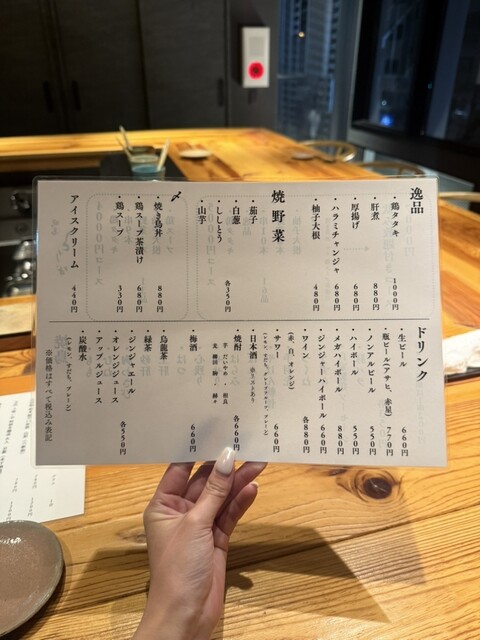 逸品
・鶏タタキ 1000円
・肝煮 880円
・厚揚げ 680円
・ハラミチャンジャ 680円
・柚子大根 480円
焼野菜
・茄子
・白葱
・ししとう
・山芋
各350円
〆
・焼き鳥丼 880円
・鶏スープ茶漬け 680円
・鶏スープ 330円
アイスクリーム 440円
ドリンク
・生ビール 660円
・瓶ビール(アサヒ、赤星) 770円
・ノンアルビール 550円
・ハイボール 550円
・メガハイボール 880円
・ジンジャーハイボール 660円
・ワイン 各880円
(赤、白、オレンジ)
・サワー 660円
・日本酒 ※リストあり
・焼酎 各660円
・梅酒 660円
・烏龍茶
・緑茶
・ジンジャエール
・オレンジジュース
・アップルジュース
・炭酸水
各550円
※価格はすべて税込み表記